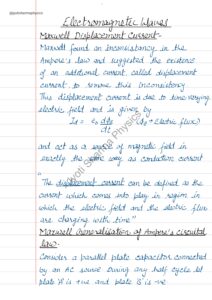 Electromagnetic Waves
Maxwell Displacement Current-
Maxwell found an inconsistency in the
Ampere's law and suggested the existence
of an additional current called displacement
current, to remove this inconsistency
This displacement current is due to time varying
electric field and is given by
Id = ε₀ dϕE/dt (ϕE = Electric flux)
and act as a source of magnetic field in
exactly the same way as conduction current
"The displacement current can be defined as the
current which comes into play in region in
which the electric field and the electric flux
are changing with time"
Maxwell Generalisation of Ampere's circuital
law-
Consider a parallel plate capacitor connected
by an AC source During any half cycle let
plate A is +ve and plate B is -ve